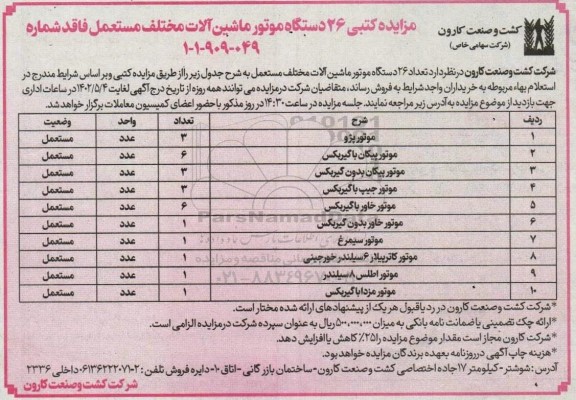 کشت و صنعت کارون
(شرکت سهامی خاص)
مزایده کتبی ۲۶ دستگاه موتور ماشین آلات مختلف مستعمل فاقد شماره
۱-۱-۹۰۹-۰۴۹
شرکت کشت و صنعت کارون در نظر دارد تعداد ۲۶ دستگاه موتور ماشین آلات مختلف مستعمل به شرح جدول زیر را از طریق مزایده کتبی و بر اساس شرایط مندرج در
استعلام بهاء مربوطه به خریداران واجد شرایط به فروش رساند، متقاضیان شرکت در مزایده می توانند همه روزه از تاریخ درج آگهی لغایت ۱۴۰۲/۵/۴ در ساعات اداری
جهت بازدید از موضوع مزایده به آدرس زیر مراجعه نمایند. جلسه مزایده در ساعت ۱۴:۳۰ در روز مذکور با حضور اعضای کمیسیون معاملات برگزار خواهد شد.
ردیف شرح تعداد واحد وضعیت
۱ موتور پژو ۳ عدد مستعمل
۲ موتور پیکان با گیربکس ۶ عدد مستعمل
۳ موتور پیکان بدون گیربکس ۳ عدد مستعمل
۴ موتور جیپ با گیربکس ۳ عدد مستعمل
۵ موتور خاور با گیربکس ۶ عدد مستعمل
۶ موتور خاور بدون گیربکس ۱ عدد مستعمل
۷ موتور سیمرغ ۱ عدد مستعمل
۸ موتور کاترپیلار ۶ سیلندر خورجینی ۱ عدد مستعمل
۹ موتور اطلس ۸ سیلندر ۱ عدد مستعمل
۱۰ موتور مزدا با گیربکس ۱ عدد مستعمل
ParsNamadData
۰۲۱-۸۸۳۴۹۶۷
*شرکت کشت و صنعت کارون در رد یا قبول هر یک از پیشنهادهای ارائه شده مختار است.
*ارائه چک تضمینی یا ضمانت نامه بانکی به میزان ۵۰۰,۰۰۰,۰۰۰ ریال به عنوان سپرده شرکت در مزایده الزامی است.
*شرکت کارون مجاز است مقدار موضوع مزایده را ۲۵٪ کاهش یا افزایش دهد.
*هزینه چاپ آگهی در روزنامه بعهده برندگان مزایده خواهد بود.
آدرس: شوشتر - کیلومتر ۱۷ جاده اختصاصی کشت و صنعت کارون - ساختمان بازرگانی - اتاق ۱۰ - دایره فروش تلفن: ۲-۰۶۱۳۶۲۲۲۰۷۱ داخلی ۲۳۳۶
شرکت کشت و صنعت کارون